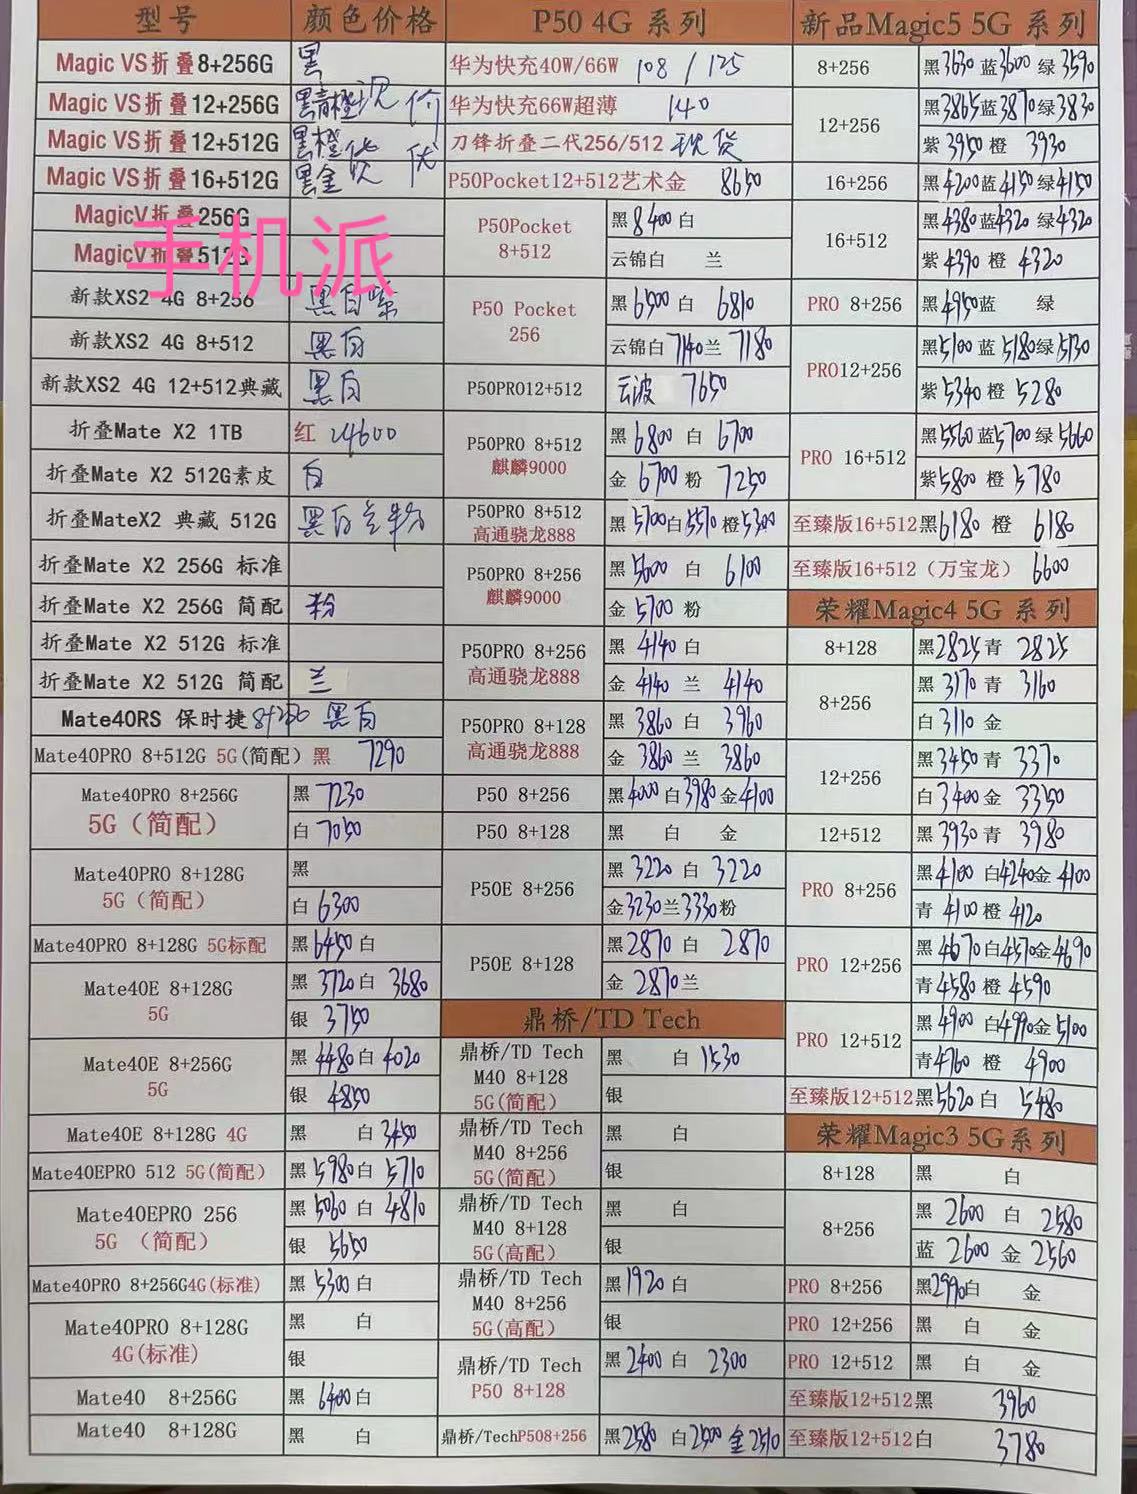 型号 颜色价格
Magic VS折叠8+256G 黑
Magic VS折叠12+256G 黑青橙 现价
Magic VS折叠12+512G 黑橙 优
Magic VS折叠16+512G 黑金
MagicV折叠256G
MagicV折叠512G
手机派
新款XS2 4G 8+256 黑白紫
新款XS2 4G 8+512 黑白
新款XS2 4G 12+512典藏 黑白
折叠Mate X2 1TB 红 24600
折叠Mate X2 512G素皮 白
折叠MateX2 典藏 512G 黑白兰粉
折叠Mate X2 256G 标准
折叠Mate X2 256G 简配 粉
折叠Mate X2 512G 标准
折叠Mate X2 512G 简配 兰
Mate40RS 保时捷 8+256 黑白
Mate40PRO 8+512G 5G(简配) 黑 7290
Mate40PRO 8+256G 黑 7230
5G(简配) 白 7050
Mate40PRO 8+128G 黑
5G(简配) 白 6300
Mate40PRO 8+128G 5G标配 黑6450 白
Mate40E 8+128G 黑 3720 白 3680
5G 银 3750
Mate40E 8+256G 黑 4480 白 4020
5G 银 4850
Mate40E 8+128G 4G 黑 白 3450
Mate40EPRO 512 5G(简配) 黑 5980 白 5710
Mate40EPRO 256 黑 5060 白 4810
5G (简配) 银 5650
Mate40PRO 8+256G4G(标准) 黑 5300 白
Mate40PRO 8+128G 黑 白
4G(标准) 银
Mate40 8+256G 黑 6400 白
Mate40 8+128G 黑 白
P50 4G 系列
华为快充40W/66W 108 / 125
华为快充66W超薄 140
刀锋折叠二代256/512 现货
P50Pocket12+512艺术金 8650
P50Pocket 黑 8400 白
8+512 云锦白 兰
P50 Pocket 黑 6500 白 6810
256 云锦白 7140 兰 7180
P50PRO12+512 云波 7650
P50PRO 8+512 黑 6800 白 6700
麒麟9000 金 6700 粉 7250
P50PRO 8+512 黑 5700 白 5570 橙 5300
高通骁龙888
P50PRO 8+256 黑 5600 白 6100
麒麟9000 金 5700 粉
P50PRO 8+256 黑 4140 白
高通骁龙888 金 4140 兰 4140
P50PRO 8+128 黑 3860 白 3960
高通骁龙888 金 3860 兰 3860
P50 8+256 黑 4000 白 3980 金 4100
P50 8+128 黑 白 金
P50E 8+256 黑 3220 白 3220
金 3230 兰 3330 粉
P50E 8+128 黑 2870 白 2870
金 2870 兰
鼎桥/TD Tech
鼎桥/TD Tech 黑 白 1530
M40 8+128
5G(简配) 银
鼎桥/TD Tech 黑 白
M40 8+256
5G(简配) 银
鼎桥/TD Tech 黑 白
M40 8+128
5G(高配) 银
鼎桥/TD Tech 黑 1920 白
M40 8+256
5G(高配) 银
鼎桥/TD Tech 黑 2400 白 2300
P50 8+128
鼎桥/TechP508+256 黑 2580 白 2500 金 2510
新品Magic5 5G 系列
8+256 黑 3630 蓝 3600 绿 3590
12+256 黑 3865 蓝 3870 绿 3830
紫 3950 橙 3930
16+256 黑 4200 蓝 4150 绿 4150
16+512 黑 4380 蓝 4320 绿 4320
紫 4390 橙 4320
PRO 8+256 黑 4950 蓝 绿
PRO12+256 黑 5100 蓝 5180 绿 5130
紫 5340 橙 5280
PRO 16+512 黑 5560 蓝 5700 绿 5660
紫 5800 橙 5780
至臻版16+512 黑 6180 橙 6180
至臻版16+512(万宝龙) 6600
荣耀Magic4 5G 系列
8+128 黑 2825 青 2825
8+256 黑 3170 青 3160
白 3110 金
12+256 黑 3450 青 3370
白 3400 金 3350
12+512 黑 3930 青 3980
PRO 8+256 黑 4100 白 4240 金 4100
青 4100 橙 4120
PRO 12+256 黑 4670 白 4570 金 4690
青 4580 橙 4590
PRO 12+512 黑 4900 白 4990 金 5100
青 4760 橙 4900
至臻版12+512 黑 5620 白 5480
荣耀Magic3 5G系列
8+128 黑 白
8+256 黑 2600 白 2580
蓝 2600 金 2560
PRO 8+256 黑 2990 白 金
PRO 12+256 黑 白 金
PRO 12+512 黑 白 金
至臻版12+512黑 3960
至臻版12+512白 3780